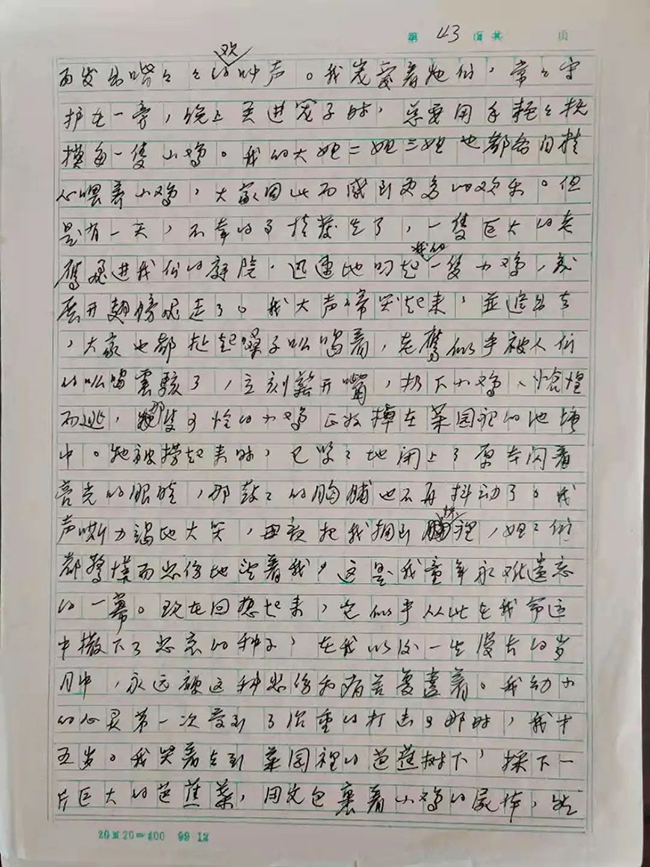 第 43 页共 页
而发出嘴々々的欢叫声。我宠爱着她们，常々守
护在一旁，晚上关进笼子时，总要用手轻々抚
摸每一隻小鸡。我的大姐二姐三姐也都各自精
心喂养小鸡，大家因此而感到更多的欢乐。但
是有一天，不幸的事情发生了，一隻巨大的老
鹰飞进我们的庭院，迅速地叼起我的一隻小鸡，
展开翅膀飞走了。我大声啼哭起来，並追出去
，大家也都扯起嗓子吆喝着，老鹰似乎被人们
的吆喝震骇了，立刻张开嘴，扔下小鸡、怆惶
而逃，隻可怜的小鸡正好掉在菜园裡的池塘
中。她被捞起来时，已紧々地闭上了原来闪着
亮光的眼睛，那鼓々的胸脯也不再抖动了。我
声嘶力竭地大哭，母亲把我拥到怀裡，姐々们
都惊慌而悲伤地望着我，这是我童年永难遗忘
的一幕。现在回想起来，它似乎从此在我命运
中撒下了悲哀的种子，在我以后一生漫长的岁
月中，永远被这种悲伤和痛苦笼盖着。我幼小
的心灵第一次受到了沉重的打击，那时，我才
五岁。我哭着走到菜园裡的芭蕉树下，採下一
片巨大的芭蕉葉，用它包裹着小鸡的尸体，然
20×20=400 99 12